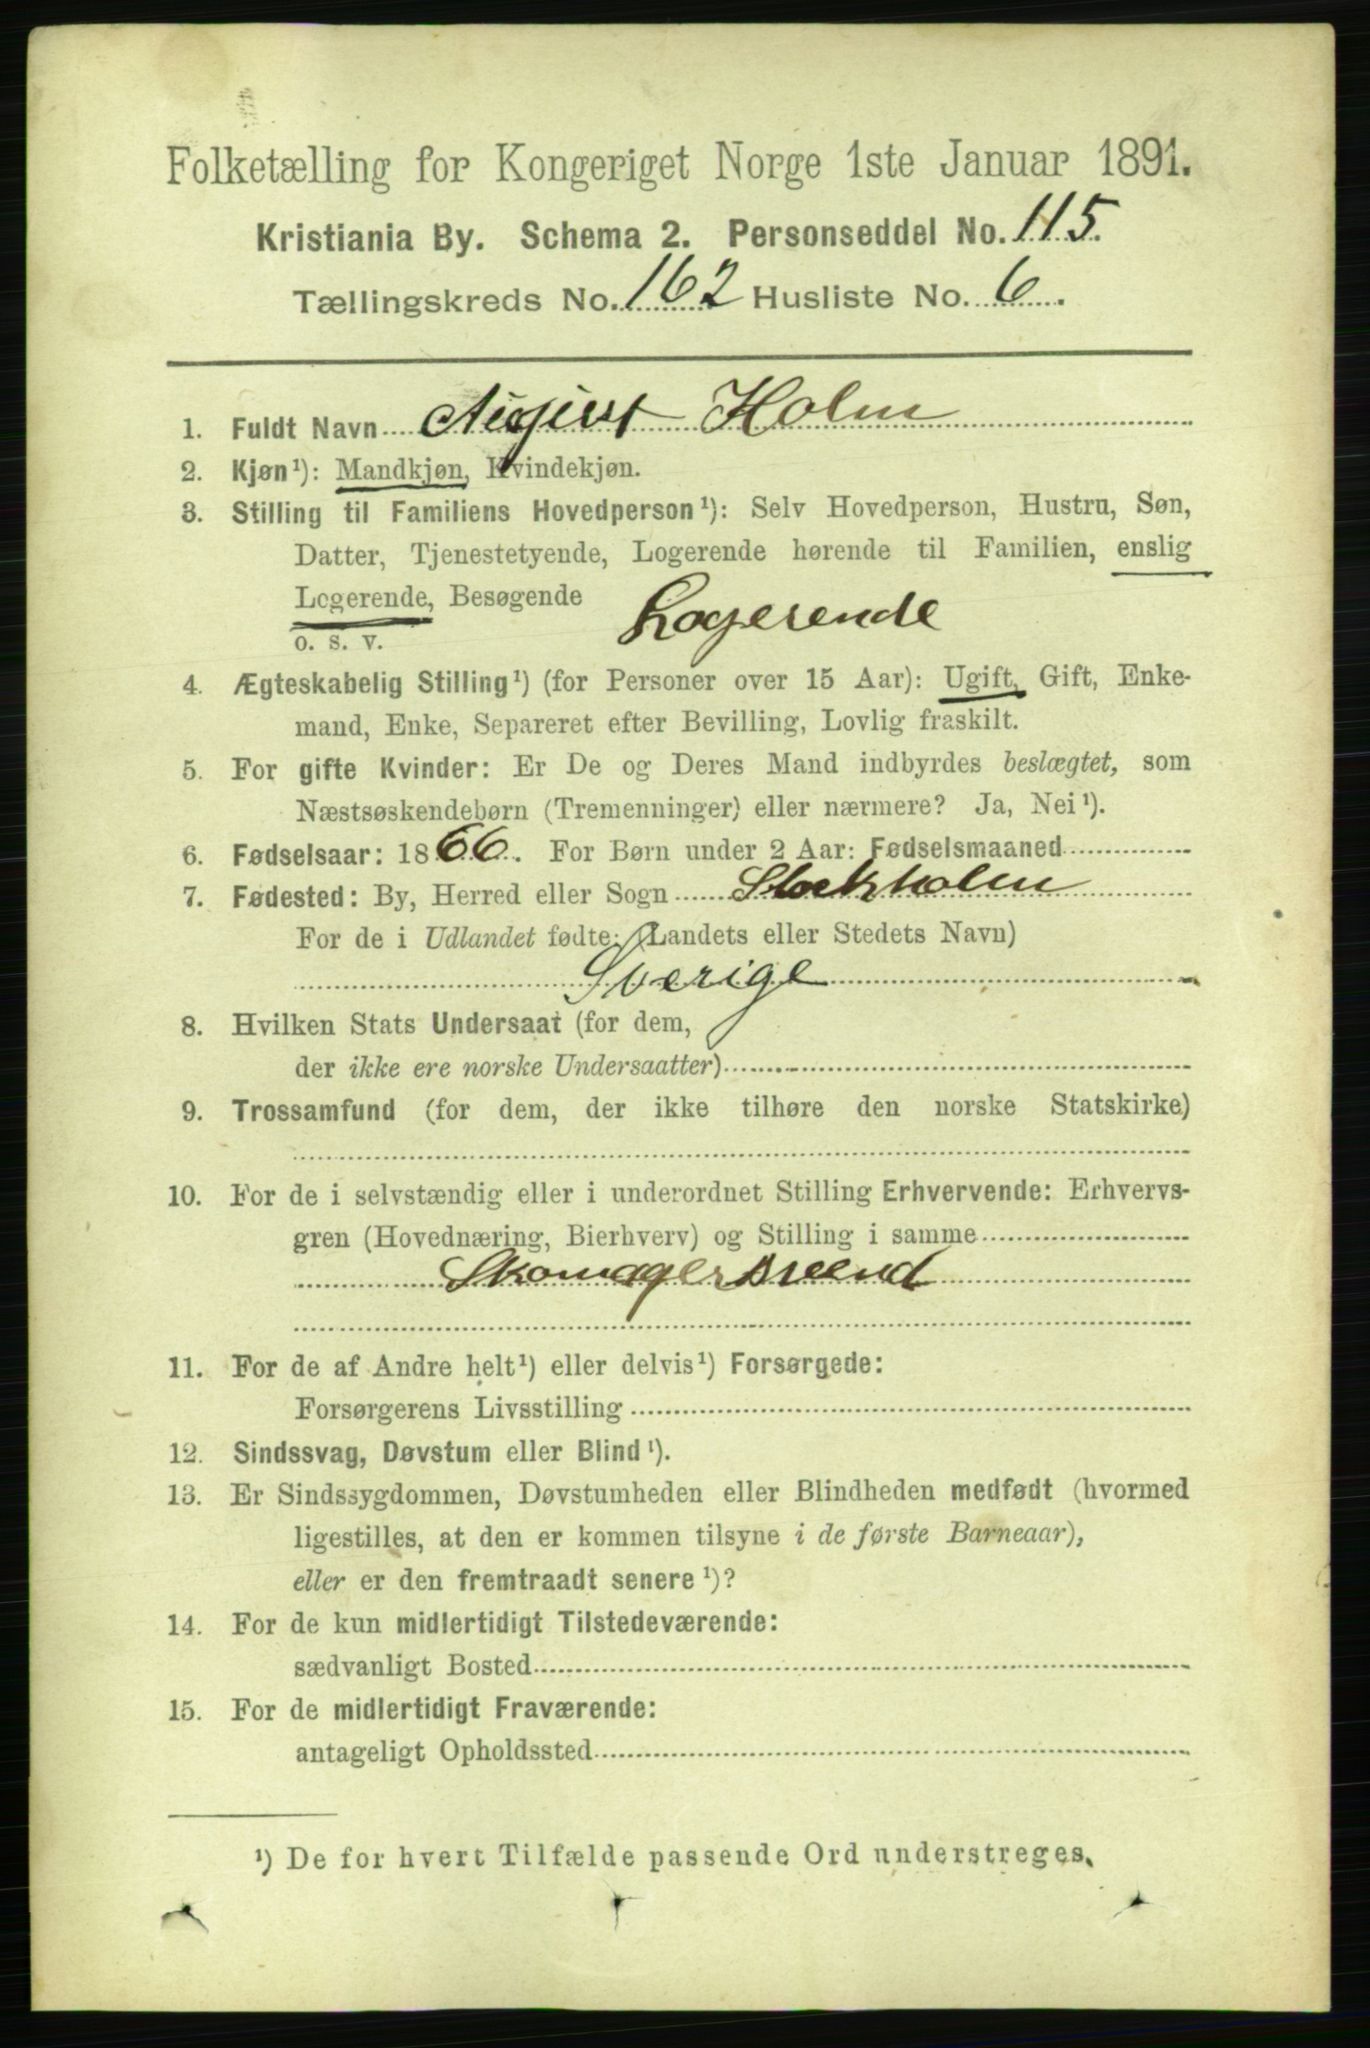 Folketælling for Kongeriget Norge 1ste Januar 1891.
Kristiania By. Schema 2. Personseddel No. 115.
Tællingskreds No. 162 Husliste No. 6.
1. Fuldt Navn August Holm
2. Kjøn¹): Mandkjøn, Kvindekjøn.
3. Stilling til Familiens Hovedperson¹): Selv Hovedperson, Hustru, Søn,
Datter, Tjenestetyende, Logerende hørende til Familien, enslig
Logerende, Besøgende
o. s. v. Logerende
4. Ægteskabelig Stilling¹) (for Personer over 15 Aar): Ugift, Gift, Enke-
mand, Enke, Separeret efter Bevilling, Lovlig fraskilt.
5. For gifte Kvinder: Er De og Deres Mand indbyrdes beslægtet, som
Næstsøskendebørn (Tremenninger) eller nærmere? Ja, Nei¹).
6. Fødselsaar: 1866. For Børn under 2 Aar: Fødselsmaaned
7. Fødested: By, Herred eller Sogn Stockholm
For de i Udlandet fødte: (Landets eller Stedets Navn)
Sverige
8. Hvilken Stats Undersaat (for dem,
der ikke ere norske Undersaatter)
9. Trossamfund (for dem, der ikke tilhøre den norske Statskirke)
10. For de i selvstændig eller i underordnet Stilling Erhvervende: Erhvervs-
gren (Hovednæring, Bierhverv) og Stilling i samme
Skomagersveend
11. For de af Andre helt¹) eller delvis¹) Forsørgede:
Forsørgerens Livsstilling
12. Sindssvag, Døvstum eller Blind¹).
13. Er Sindssygdommen, Døvstumheden eller Blindheden medfødt (hvormed
ligestilles, at den er kommen tilsyne i de første Barneaar),
eller er den fremtraadt senere¹)?
14. For de kun midlertidigt Tilstedeværende:
sædvanligt Bosted
15. For de midlertidigt Fraværende:
antageligt Opholdssted
¹) De for hvert Tilfælde passende Ord understreges.